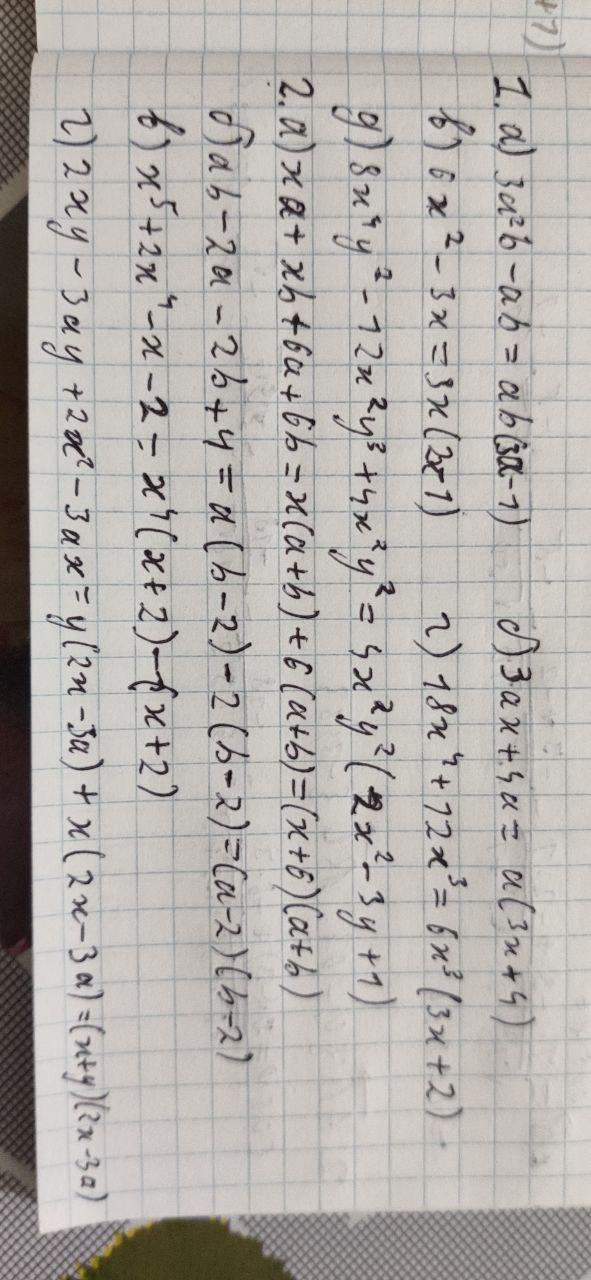 +7)
1. а) 3a²b - ab = ab(3a-1) б) 3ax + 4a = a(3x+4)
в) 6x² - 3x = 3x(2x-1) г) 18x⁴ + 12x³ = 6x³(3x+2)
д) 8x⁴y² - 12x²y³ + 4x²y² = 4x²y²(2x² - 3y + 1)
2. а) xa + xb + 6a + 6b = x(a+b) + 6(a+b) = (x+6)(a+b)
б) ab - 2a - 2b + 4 = a(b-2) - 2(b-2) = (a-2)(b-2)
в) x⁵ + 2x⁴ - x - 2 = x⁴(x+2) - (x+2)
г) 2xy - 3ay + 2x² - 3ax = y(2x-3a) + x(2x-3a) = (x+y)(2x-3a)